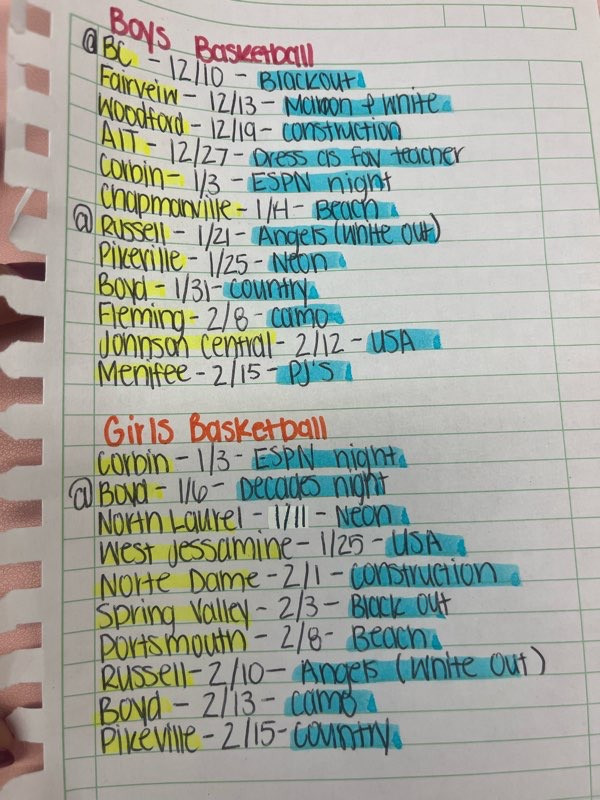 Boys Basketball
@ BC - 12/10 - Blackout
Fairveiw - 12/13 - Maroon & White
Woodford - 12/19 - construction
AIT - 12/27 - Dress as fav teacher
Corbin - 1/3 - ESPN night
Chapmanville - 1/4 - Beach
@ Russell - 1/21 - Angels (White out)
Pikeville - 1/25 - Neon
Boyd - 1/31 - country
Fleming - 2/8 - camo
Johnson Central - 2/12 - USA
Menifee - 2/15 - PJ's
Girls Basketball
Corbin - 1/3 - ESPN night
@ Boyd - 1/6 - Decades night
North Laurel - 1/11 - Neon
West Jessamine - 1/25 - USA
Norte Dame - 2/1 - construction
Spring Valley - 2/3 - Black out
Portsmouth - 2/8 - Beach
Russell - 2/10 - Angels (White Out)
Boyd - 2/13 - camo
Pikeville - 2/15 - country